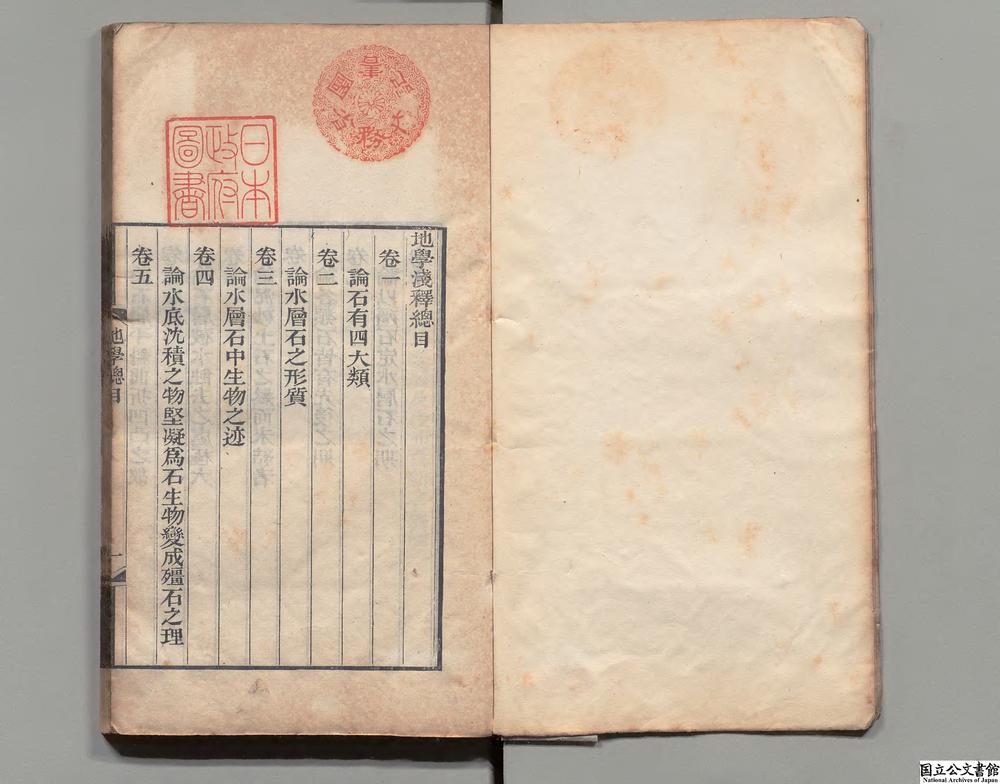 地學淺釋總目
卷一
論石有四大類
卷二
論水層石之形質
卷三
論水層石中生物之迹
卷四
論水底沈積之物堅凝爲石生物變成殭石之理
卷五
地學總目
一
日本
政府
圖書
國立公文書館
National Archives of Japan